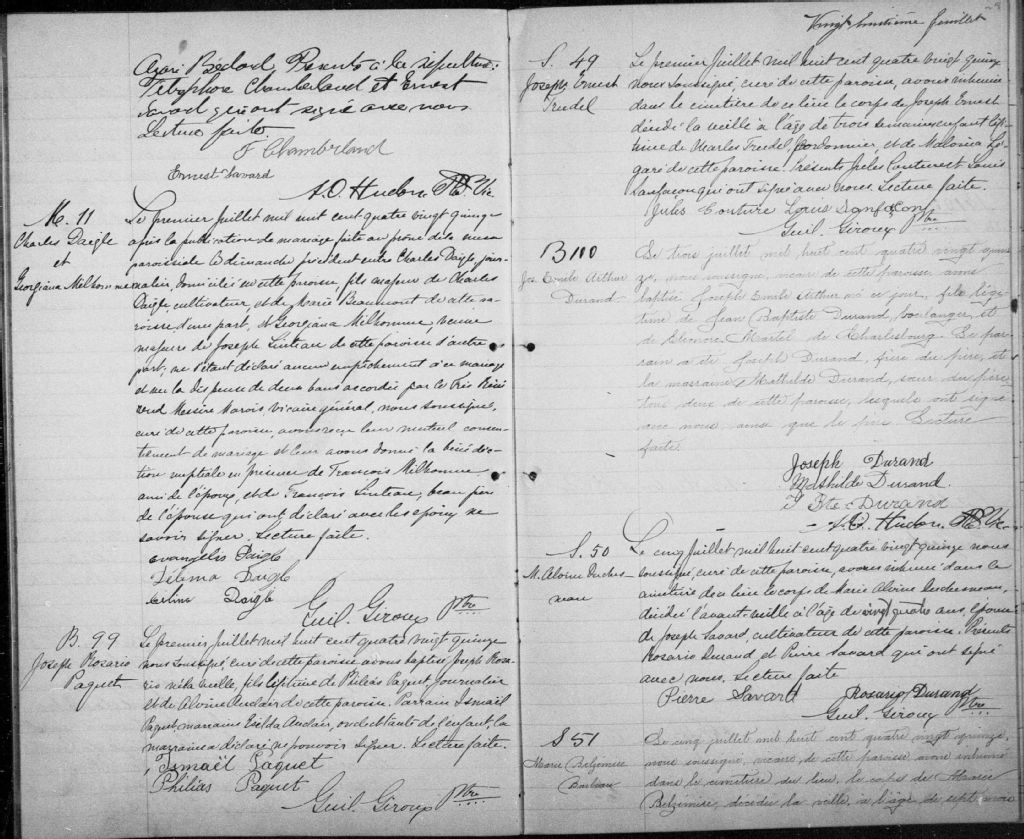 Azari Bedard Présents à la sépulture:
Télesphore Chamberland et Ernest
Savard qui ont signé avec nous
Lecture faite.
T Chamberland
Ernest Savard
A.O. Hudon, Ptre Vic
M. 11
Charles Daigle
et
Georgiana Milhomme
Le premier juillet mil huit cent quatre vingt quinze
après la publication de mariage faite au prône de la messe
paroissiale le dimanche précédent entre Charles Daigle, jour-
nalier, domicilié en cette paroisse, fils majeur de Charles
Daigle, cultivateur, et de Marie Beaumont de cette pa-
roisse d'une part, et Georgiana Milhomme, veuve
majeure de Joseph Linteau de cette paroisse d'autre
part; ne s'étant déclaré aucun empêchement à ce mariage
et vu la dispense de deux bans accordée par le Très Révé
rend Messire Marois, vicaire général, nous soussigné,
curé de cette paroisse, avons reçu leur mutuel consen-
tement de mariage et leur avons donné la bénédic-
tion nuptiale en présence de François Milhomme
ami de l'époux, et de François Linteau, beau père
de l'épouse qui ont déclaré avec les époux ne
savoir signer. Lecture faite.
Daigle
Zélima Daigle
Daigle
Guil. Giroux Ptre
B. 99
Joseph Rosario
Paquet
Le premier juillet mil huit cent quatre vingt quinze
nous soussigné, curé de cette paroisse avons baptisé Joseph Rosa-
rio né la veille, fils légitime de Philéas Paquet journalier
et de Alvine Auclair de cette paroisse. Parrain Ismaël
Paquet, marraine Exilda Auclair, oncle et tante de l'enfant, la
marraine a déclaré ne pouvoir signer. Lecture faite.
Ismaël Paquet
Philias Paquet
Guil. Giroux Ptre
Vingt huitième feuillet
S. 49
Joseph Ernest
Trudel
Le premier juillet mil huit cent quatre vingt quinze
nous soussigné, curé de cette paroisse, avons inhumé
dans le cimetière de ce lieu le corps de Joseph Ernest
décédé la veille à l'âge de trois semaines enfant légi-
time de Charles Trudel, cordonnier, et de Malvina Lé-
garé de cette paroisse. Présents Jules Couture et Louis
Sanfaçon qui ont signé avec nous. Lecture faite.
Jules Couture Louis Sanfaçon
Guil. Giroux Ptre
B 100
Jos. Emile Arthur
Durand
Le trois juillet mil huit cent quatre vingt quin
ze, nous soussigné, vicaire de cette paroisse avons
baptisé Joseph Emile Arthur né ce jour, fils légi-
time de Jean Baptiste Durand, boulanger, et
de Eléonore Martel de Charlesbourg. Le par-
rain a été Joseph Durand, frère du père, et
la marraine Mathilde Durand, sœur du père
tous deux de cette paroisse, lesquels ont signé
avec nous ainsi que le père. Lecture
faite.
Joseph Durand
Mathilde Durand
J Bte Durand
A.O. Hudon, Ptre Vic
S. 50
M. Alvine Duches-
neau
Le cinq juillet mil huit cent quatre vingt quinze nous
soussigné, curé de cette paroisse, avons inhumé dans le
cimetière de ce lieu le corps de Marie Alvine Duchesneau,
décédée l'avant-veille à l'âge de vingt quatre ans, épouse
de Joseph Savard, cultivateur de cette paroisse. Présents
Rosario Durand et Pierre Savard qui ont signé
avec nous. Lecture faite
Pierre Savard Rosario Durand
Guil. Giroux Ptre
S 51
Marie Belzémire
Le cinq juillet mil huit cent quatre vingt quinze,
nous soussigné, vicaire de cette paroisse avons inhumé
dans le cimetière du lieu, le corps de Marie
Belzémire, décédée la veille, à l'âge de sept mois